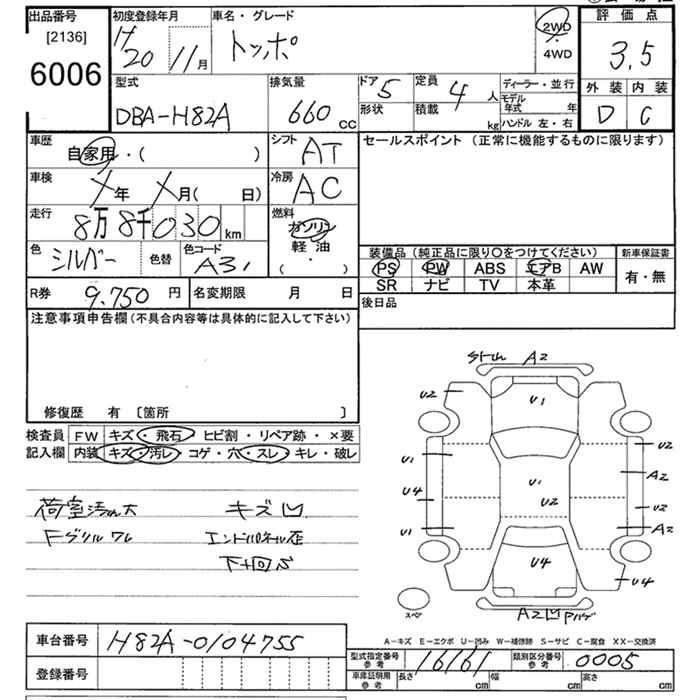 出品番号 初度登録年月 車名・グレード 評価点
[2136] H20 11月 トッポ 2WD 3.5
6006 4WD 外装 内装
型式 排気量 ドア 5 定員 4人 ディーラー・並行 D C
DBA-H82A 660cc 形状 積載 kg モデル年式 年
ハンドル 左・右
車歴 シフト セールスポイント (正常に機能するものに限ります)
自家用・( ) AT
車検 冷房
X年 X月( 日) AC
走行 燃料
8万8千030km ガソリン
色 色替 色コード 軽油
シルバー A31 ( ・ )
装備品 (純正品に限り〇をつけてください) 新車保証書
PS PW ABS エアB AW 有・無
SR ナビ TV 本革
R券 9.750円 名変期限 月 日 後日品
注意事項申告欄 (不具合内容等は具体的に記入して下さい)
修復歴 有 [箇所 ]
検査員 FW キズ・飛石・ヒビ割・リペア跡・×要
記入欄 内装 キズ・汚レ・コゲ・穴・スレ・キレ・破レ
荷室汚れ大 キズ凹
Fグリルワレ エンドパネル歪
下廻り
A2
U2 U1
U1 U2
A2
U4 U1 U2
U2
U1 A2
U4 U4
スペア A2凹
A-キズ E-エクボ U-凹み W-補修跡 S-サビ C-腐食 XX-交換済
車台番号 H82A-0104755
型式指定番号 参考 16161 類別区分番号 参考 0005
登録番号 車庫証明用 参考 長さ cm 幅 cm 高さ cm